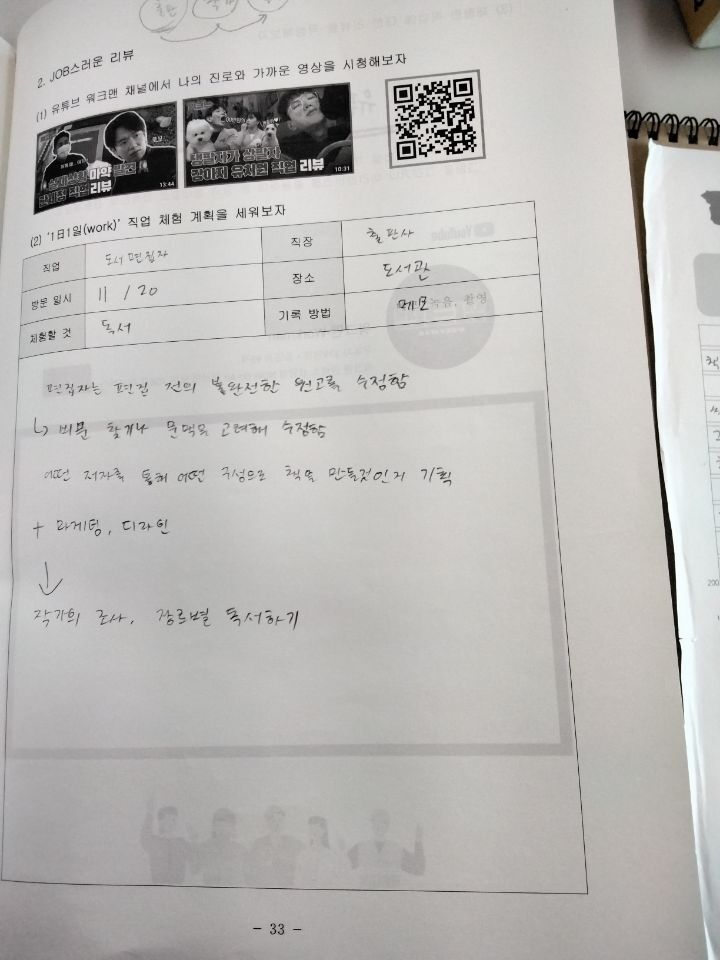 출판
2. JOB스러운 리뷰
(1) 유튜브 워크맨 채널에서 나의 진로와 가까운 영상을 시청해보자
실제상황 마약 발견
관세청 직업 리뷰
13:44
강아지 유치원 직업 리뷰
10:31
(2) '1日1일(work)' 직업 체험 계획을 세워보자
직업 도서편집자 직장 출판사
방문 일시 11 / 20 장소 도서관
체험할 것 독서 기록 방법 메모 녹음, 촬영
편집자는 편집 전의 불완전한 원고를 수정함
↳ 비문 찾거나 문맥을 고려해 수정함
어떤 저자를 통해 어떤 구성으로 책을 만들것인지 기획
+ 마케팅, 디자인
↓
작가의 조사, 장르별 독서하기
- 33 -
YouTube
200